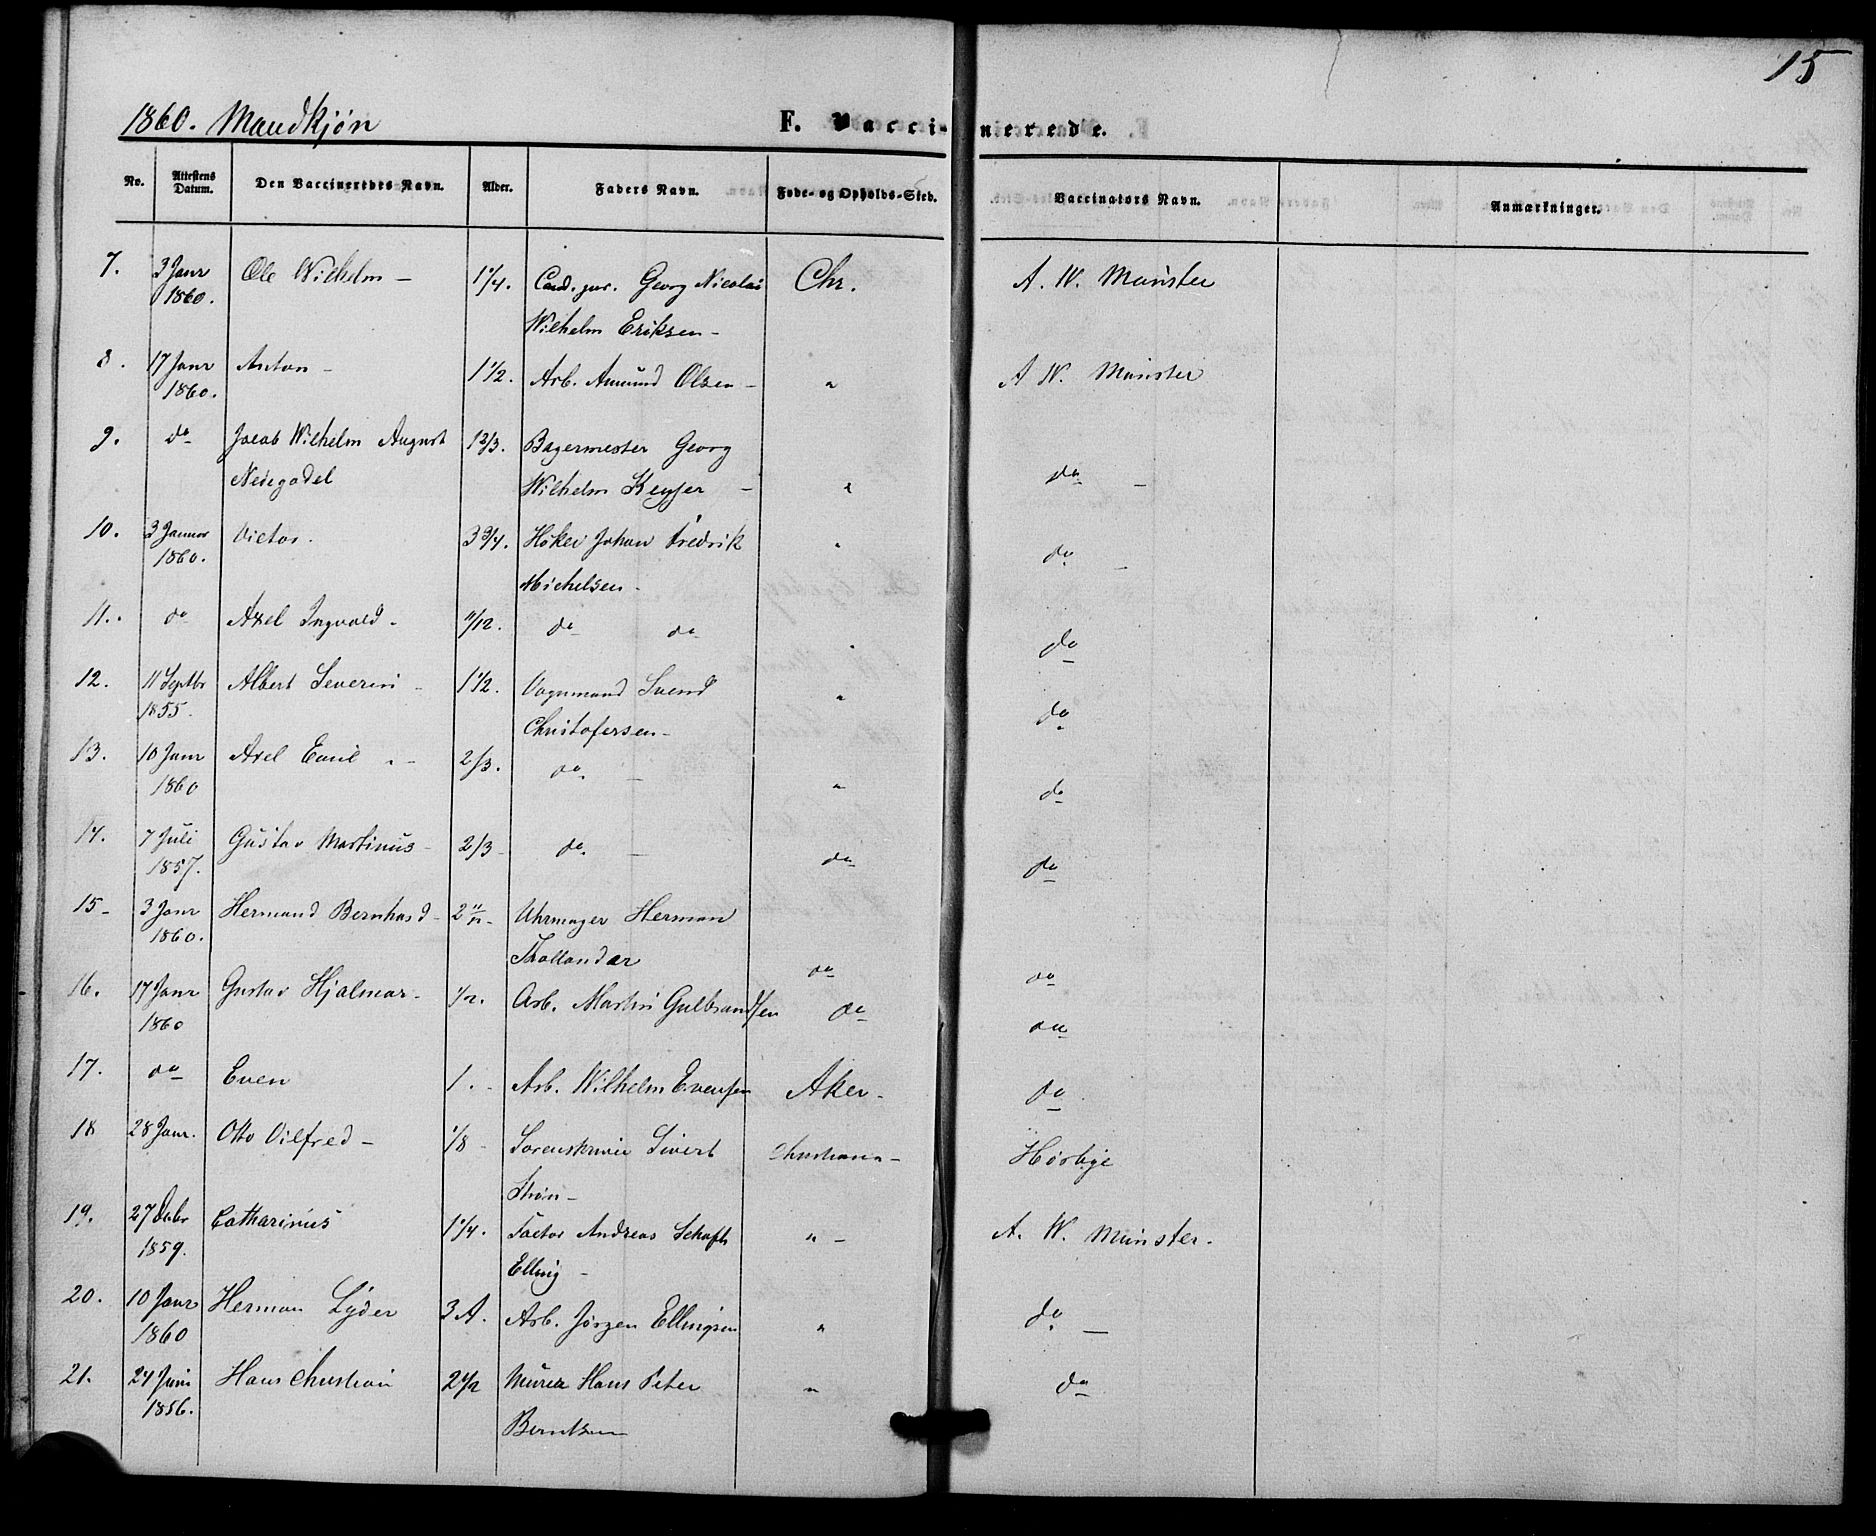 15
1860. Mandkjøn
F. Vaccinerede.
No. Attestens Datum. Den Vaccineredes Navn. Alder. Faders Navn. Føde- og Opholds-Sted. Vaccinators Navn. Anmærkninger.
7. 3 Janr Ole Wilhelm – 1 1/4. Cand. jur. Georg Nicolai Chr. A. W. Münster
1860. Wilhelm Eriksen –
8. 17 Janr Anton – 1 1/2. Arb. Amund Olsen – " A W. Münster
1860.
9. do Jacob Wilhelm August 1 2/3. Bagermester Georg
Wilhelm Keyser – " do –
10. 3 Januar Victor. 3 3/4. Høker Johan Fredrik " do –
1860. Michelsen –
11. do Axel Ingvald – 11/12. do do " do
12. 11 Septbr Albert Severin – 1 1/2. Vognmand Svend " do
1855. Christofersen –
13. 10 Janr Axel Emil – 2/3. do – " do
1860
14. 7 Juli Gustav Martinus – 2/3 do – do do
1857.
15 – 3 Janr Hermand Bernhard – 2 11/12 – Uhrmager Herman
1860. Thollander do do
16. 17 Janr Gustav Hjalmar – 1/2. Arb. Martin Gulbrandsen do do
1860
17. do Even 1. – Arb. Wilhelm Evensen Aker – do
18 28 Janr. Otto Vilfred – 1/8 – Sorenskriver Sivert Christiania – Hørbye
19. 27 Decbr Catharinus 1 1/4. Factor Andreas " – A. W. Münster.
1859. Elling –
20. 10 Janr Herman Lyder 3 A. Arb. Jørgen Ellingsen " do –
1860
21. 24 Juni Hans Christian 2 1/2 Murer Hans Peter " do
1856. Berntsen